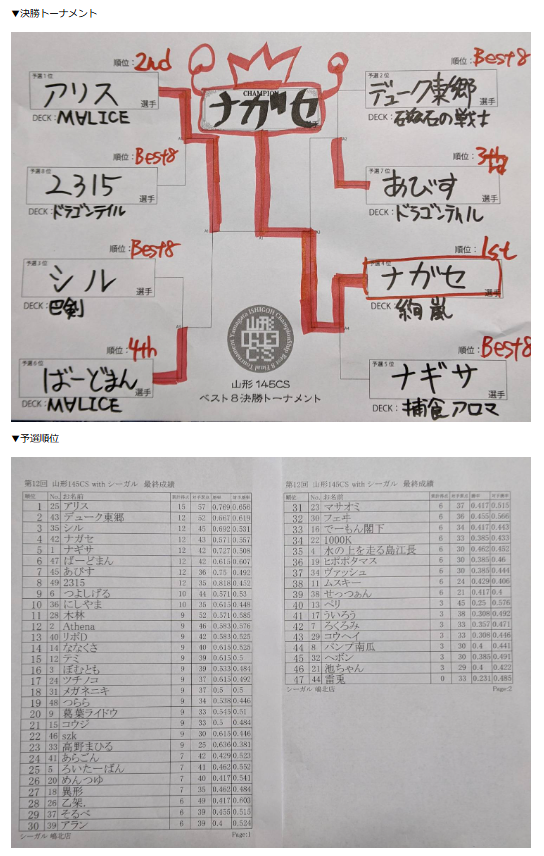 ▼決勝トーナメント
順位: 2nd
予選1位
アリス 選手
DECK: MALICE
順位: Best8
予選8位
2315 選手
DECK: ドラゴンテイル
順位: Best8
予選3位
シル 選手
DECK: 巳剣
順位: 4th
予選6位
ばーどまん 選手
DECK: MALICE
CHAMPION
ナガセ
選手
順位: Best8
予選2位
デューク東郷 選手
DECK: 磁石の戦士
順位: 3th
予選7位
あびす 選手
DECK: ドラゴンテイル
順位: 1st
予選4位
ナガセ 選手
DECK: 絢嵐
順位: Best8
予選5位
ナギサ 選手
DECK: 捕食アロマ
山形145CS
ベスト8決勝トーナメント
▼予選順位
第12回 山形145CS with シーガル 最終成績
順位 No. お名前
1 25 アリス 15 57 0.769 0.656
2 43 デューク東郷 12 52 0.667 0.619
3 35 シル 12 45 0.692 0.531
4 42 ナガセ 12 43 0.571 0.557
5 1 ナギサ 12 42 0.727 0.508
6 47 ばーどまん 12 42 0.615 0.607
7 45 あびす 12 36 0.75 0.492
8 49 2315 12 35 0.818 0.452
9 6 つよしげる 10 44 0.571 0.53
10 36 にしやま 10 35 0.615 0.449
11 28 木林 9 52 0.571 0.585
12 2 Athena 9 46 0.583 0.576
13 40 リボD 9 42 0.583 0.525
14 14 ななくさ 9 40 0.613 0.525
15 12 テミ 9 39 0.615 0.5
16 3 ぽむとも 9 39 0.533 0.484
17 24 ツチノコ 9 37 0.615 0.492
18 31 メガネニキ 9 37 0.5 0.5
19 48 つらら 9 34 0.538 0.446
20 9 葛葉ライドウ 9 33 0.543 0.51
21 15 コウジ 9 33 0.5 0.484
22 46 szk 9 30 0.615 0.446
23 33 高野まひる 9 25 0.636 0.381
24 41 あらごん 7 42 0.429 0.523
25 5 ろいたーぱん 7 41 0.462 0.552
26 20 めんつゆ 7 40 0.417 0.541
27 18 異形 7 35 0.462 0.484
28 26 乙架. 6 49 0.417 0.603
29 37 そるべ 6 39 0.455 0.515
30 39 アラン 6 39 0.4 0.524
シーガル 嶋北店 Page:1
第12回 山形145CS with シーガル 最終成績
順位 No. お名前
31 23 マサオミ 6 37 0.417 0.515
32 30 フェヰ 6 36 0.455 0.566
33 16 でーもん閣下 6 34 0.417 0.443
34 22 1000K 6 33 0.385 0.433
35 4 水の上を走る島江長 6 30 0.462 0.452
36 19 ヒポポタマス 6 30 0.385 0.46
37 34 ヴァッシュ 6 30 0.385 0.444
38 11 ムスキー 6 24 0.429 0.406
39 38 せっつぁん 6 21 0.417 0.4
40 13 ベリ 3 45 0.25 0.576
41 17 ういろう 3 38 0.308 0.492
42 7 ろくろみ 3 33 0.357 0.471
43 29 コウヘイ 3 33 0.308 0.446
44 8 パンプ南瓜 3 30 0.4 0.441
45 32 ヘボン 3 30 0.385 0.491
46 21 池ちゃん 3 29 0.4 0.422
47 44 雷兎 0 33 0.231 0.485
シーガル 嶋北店 Page:2